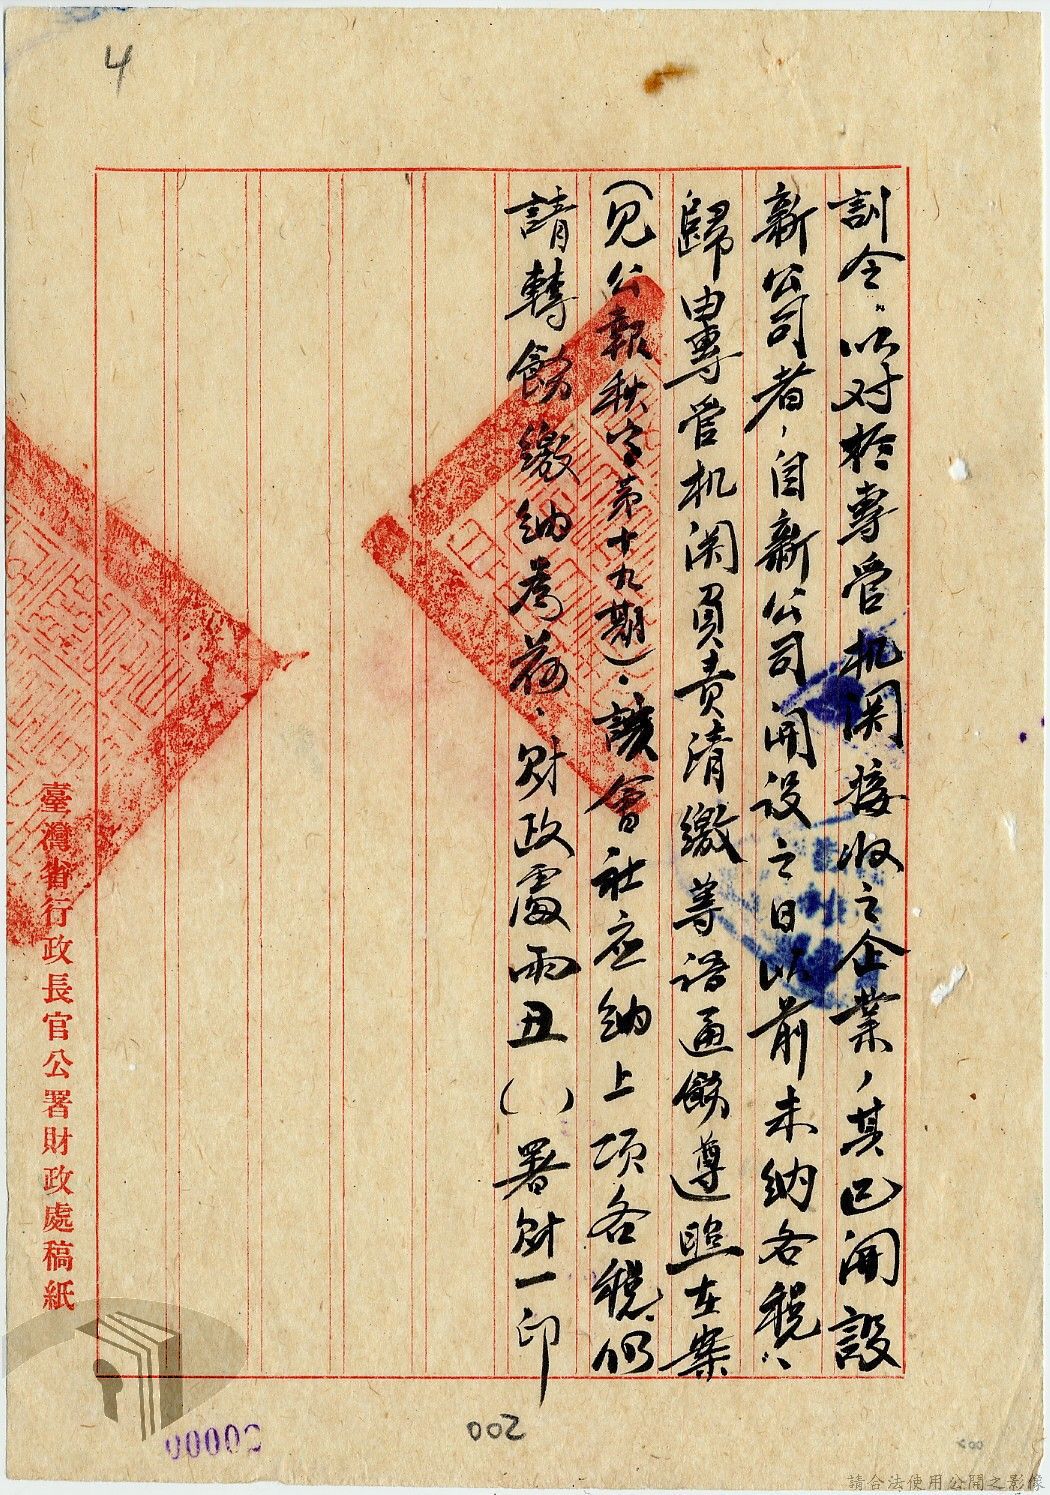 4
訓令、以对於專管机関接收之企業，其已開設
新公司者，自新公司開設之日以前未納各税、
歸由專管机関負責清繳等語通飭遵照在案
（見公報秋字第十九期）. 該會社应納上項各税、仍
請轉飭繳納為荷. 財政處丙丑（ ）署財一印
臺灣省行政長官公署財政處稿紙
00002
002
請合法使用公開之影像